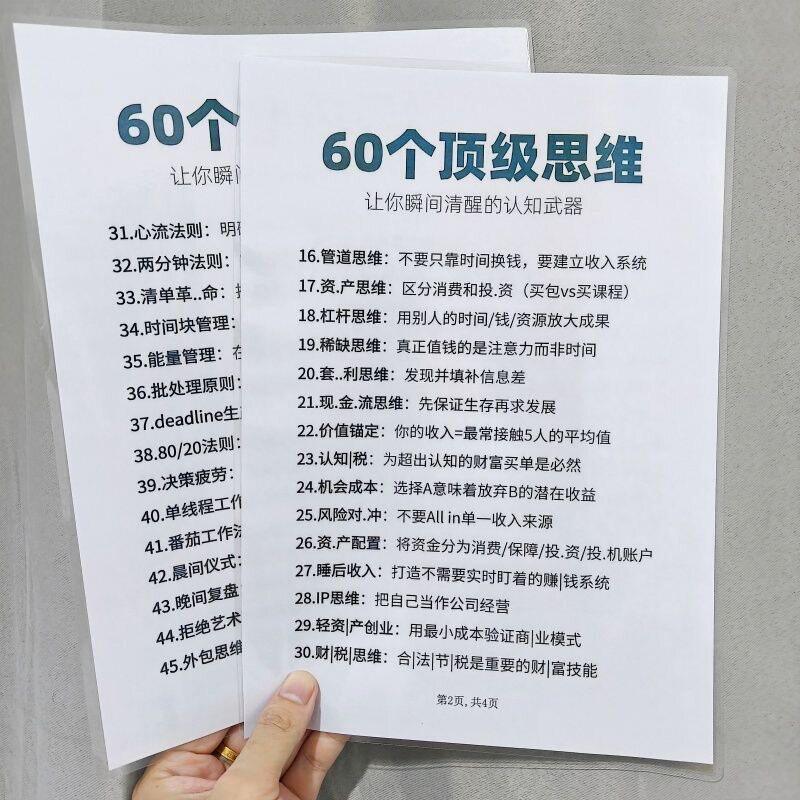 60个
让你瞬
31.心流法则：明
32.两分钟法则：
33.清单革..命：
34.时间块管理：
35.能量管理：在
36.批处理原则：
37.deadline生
38.80/20法则：
39.决策疲劳：
40.单线程工作
41.番茄工作法
42.晨间仪式：
43.晚间复盘
44.拒绝艺术
45.外包思维
60个顶级思维
让你瞬间清醒的认知武器
16.管道思维：不要只靠时间换钱，要建立收入系统
17.资.产思维：区分消费和投.资（买包vs买课程）
18.杠杆思维：用别人的时间/钱/资源放大成果
19.稀缺思维：真正值钱的是注意力而非时间
20.套..利思维：发现并填补信息差
21.现.金.流思维：先保证生存再求发展
22.价值锚定：你的收入=最常接触5人的平均值
23.认知|税：为超出认知的财富买单是必然
24.机会成本：选择A意味着放弃B的潜在收益
25.风险对.冲：不要All in单一收入来源
26.资.产配置：将资金分为消费/保障/投.资/投.机账户
27.睡后收入：打造不需要实时盯着的赚|钱系统
28.IP思维：把自己当作公司经营
29.轻资|产创业：用最小成本验证商|业模式
30.财|税|思维：合|法|节|税是重要的财|富技能
第2页,共4页